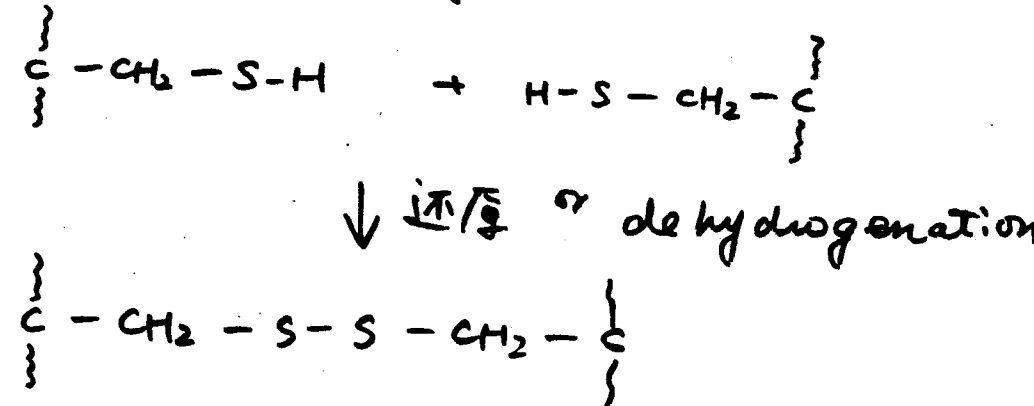 C - CH₂ - S - H + H - S - CH₂ - C
↓ 还原 or dehydrogenation
C - CH₂ - S - S - CH₂ - C